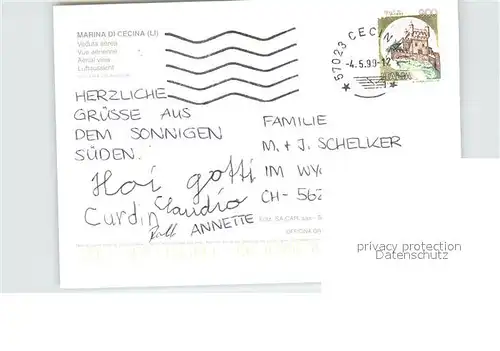 MARINA DI CECINA (LI)
Veduta aerea
Vue aérienne
Aerial view
Luftansicht
800
57023 CECIN
-4.5.99-12
HERZLICHE
GRÜSSE AUS
DEM SONNIGEN
SÜDEN.
Hoi gotti
Curdin Claudio
Ralf ANNETTE
FAMILIE
M. + J. SCHELKER
IM WY
CH-562
privacy protection
Datenschutz